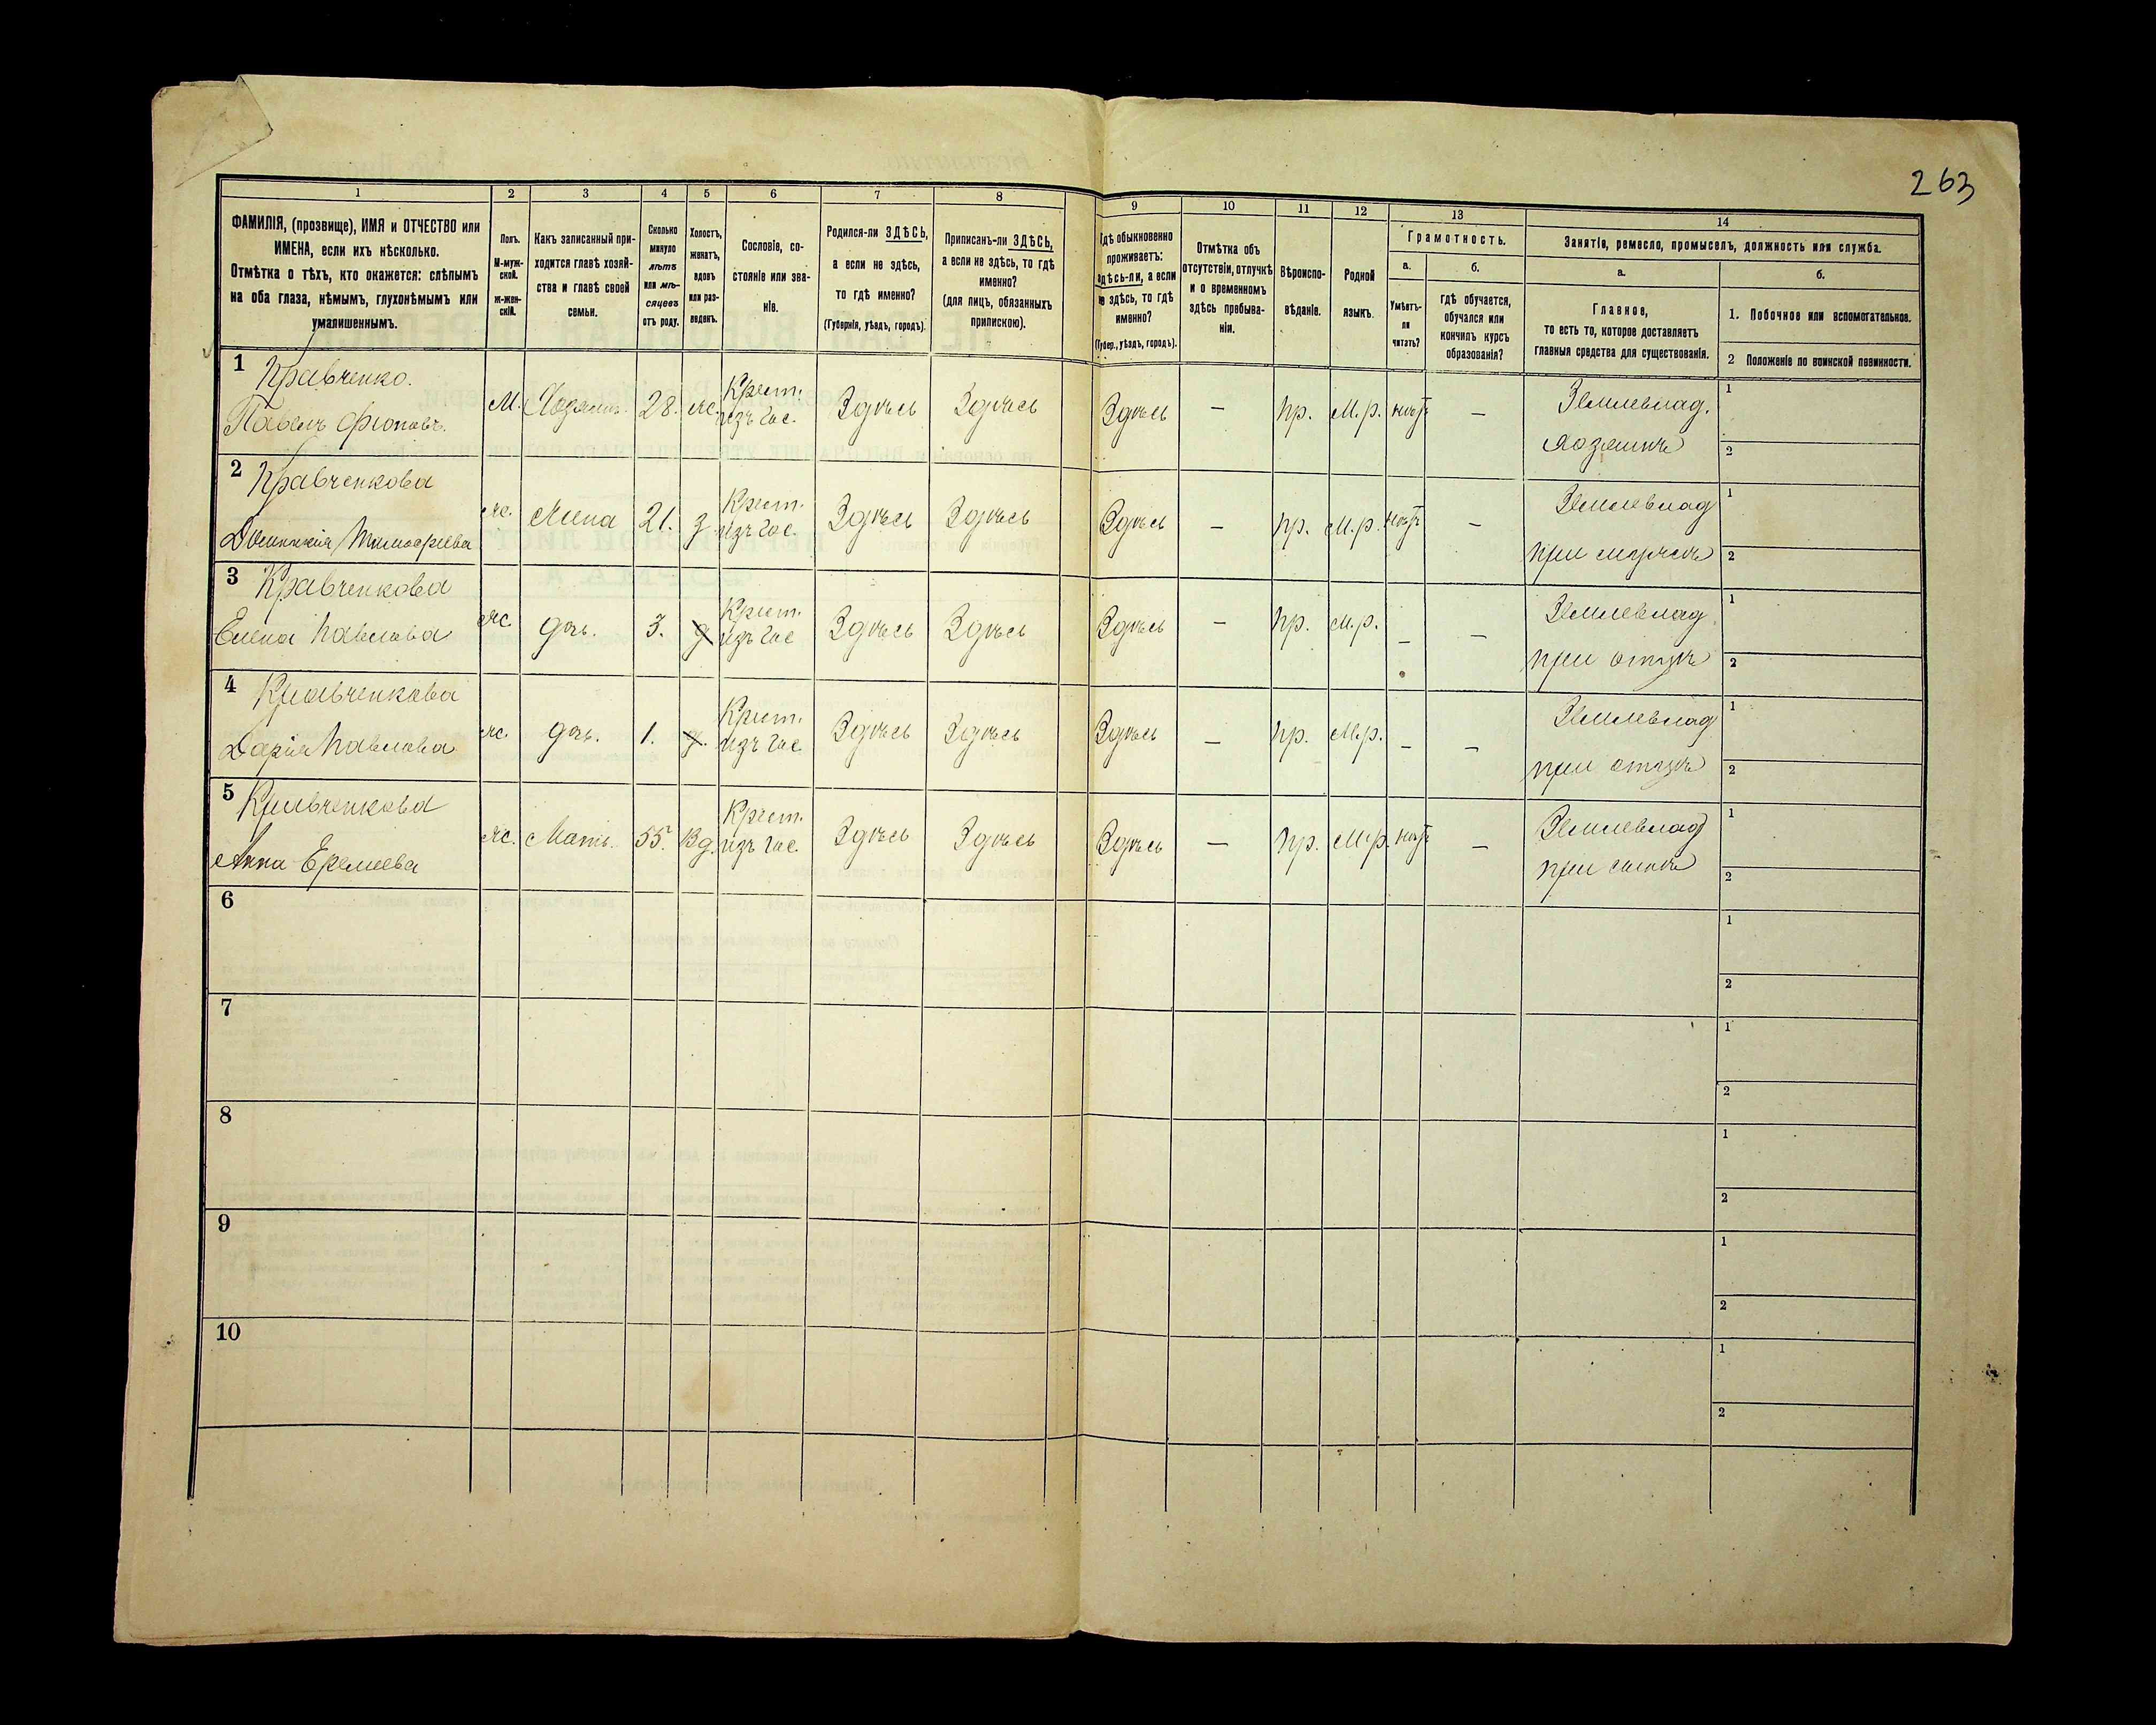 263
1
2
3
4
5
6
7
8
9
10
11
12
13
14
ФАМИЛІЯ, (прозвище), ИМЯ и ОТЧЕСТВО или
ИМЕНА, если ихъ нѣсколько.
Отмѣтка о тѣхъ, кто окажется: слѣпымъ
на оба глаза, нѣмымъ, глухонѣмымъ или
умалишеннымъ.
Полъ.
М-муж-
ской.
ж-жен-
скій.
Какъ записанный при-
ходится главѣ хозяй-
ства и главѣ своей
семьи.
Сколько
минуло
лѣтъ
или мѣ-
сяцевъ
отъ роду.
Холостъ,
женатъ,
вдовъ
или раз-
веденъ.
Сословіе, со-
стояніе или зва-
ніе.
Родился-ли ЗДѢСЬ,
а если не здѣсь,
то гдѣ именно?
(Губернія, уѣздъ, городъ).
Приписанъ-ли ЗДѢСЬ,
а если не здѣсь, то гдѣ
именно?
(для лицъ, обязанныхъ
припискою).
Гдѣ обыкновенно
проживаетъ:
здѣсь-ли, а если
не здѣсь, то гдѣ
именно?
(Губер., уѣздъ, городъ).
Отмѣтка объ
отсутствіи, отлучкѣ
и о временномъ
здѣсь пребыва-
ніи.
Вѣроиспо-
вѣданіе.
Родной
языкъ.
Грамотность.
а.
б.
Умѣетъ-
ли
читать?
гдѣ обучается,
обучался или
кончилъ курсъ
образованія?
Занятіе, ремесло, промыселъ, должность или служба.
а.
б.
Главное,
то есть то, которое доставляетъ
главныя средства для существованія.
1. Побочное или вспомогательное.
2 Положеніе по воинской повинности.
1 Кравченко.
Павелъ М. Хозяинъ 28. ж. Крест. изъ гос. Здѣсь Здѣсь Здѣсь — пр. М.р. нѣтъ — Землевлад. хозяинъ 1 2
2 Кравченкова
Тимофѣева ж. жена 21. з. Крест. изъ гос. Здѣсь Здѣсь Здѣсь — пр. М.р. нѣтъ — Землевлад при мужѣ 1 2
3 Кравченкова
Елена Павлова ж дочь. 3. Крест. изъ гос Здѣсь Здѣсь Здѣсь — пр. М.р. — — Землевлад. при отцѣ 1 2
4 Кравченкова
Дарія Павлова ж. дочь. 1. Крест. изъ гос. Здѣсь Здѣсь Здѣсь — пр. М.р. — — Землевлад при отцѣ 1 2
5 Кравченкова
Анна Еремеева ж. Мать. 55. вд. Крест. изъ гос. Здѣсь Здѣсь Здѣсь — пр. М.р. нѣтъ — Землевлад при сынѣ 1 2
6 1 2
7 1 2
8 1 2
9 1 2
10 1 2